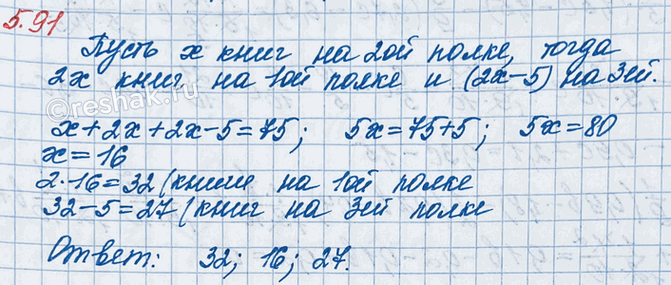 5.91
Пусть x книг на 2ой полке, тогда
2x книг на 1ой полке и (2x-5) на 3ей.
©reshak.ru
x+2x+2x-5=75; 5x=75+5; 5x=80
x=16
2·16=32 (книги на 1ой полке
32-5=27 (книг на 3ей полке
Ответ: 32; 16; 27.